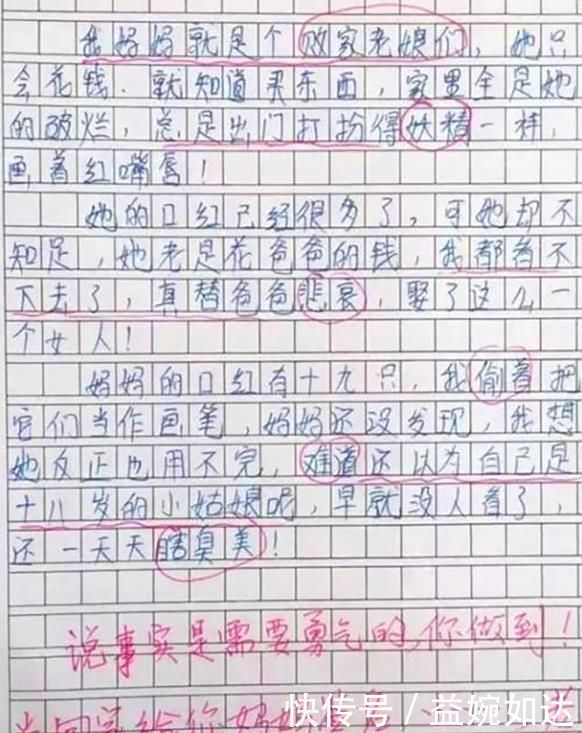 我妈妈就是个败家老娘们，她只
会花钱．就知道买东西，家里全是她
的破烂，总是出门打扮得妖精一样，
画着红嘴唇！
她的口红已经很多了，可她却不
知足，她老是花爸爸的钱，我都看不
下去了，真替爸爸悲哀，娶了这么一
个女人！
妈妈的口红有十九只，我偷着把
它们当作画笔，妈妈还没发现，我想
她反正也用不完，难道还以为自己是
十八岁的小姑娘呢，早就没人看了，
还一天天瞎臭美！
说事实是需要勇气的，你做到！
回家给你妈
快传号/益婉如达